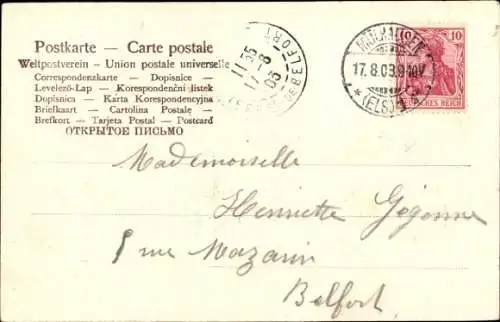 Postkarte — Carte postale
Weltpostverein - Union postale universelle
Correspondenzkarte - Dopisnice -
Levelező-Lap - Korespondenční lístek
Dopisnica - Karta Korespondencyjna
Briefkaart - Cartolina Postale -
Brefkort - Tarjeta Postal - Postcard
ОТКРЫТОЕ ПИСЬМО
11 35
17-8
03
BELFORT
17.8.03.9-10V.
(ELS)
10
DEUTSCHES REICH
Mademoiselle
Henriette
rue Mazarin
Belfort